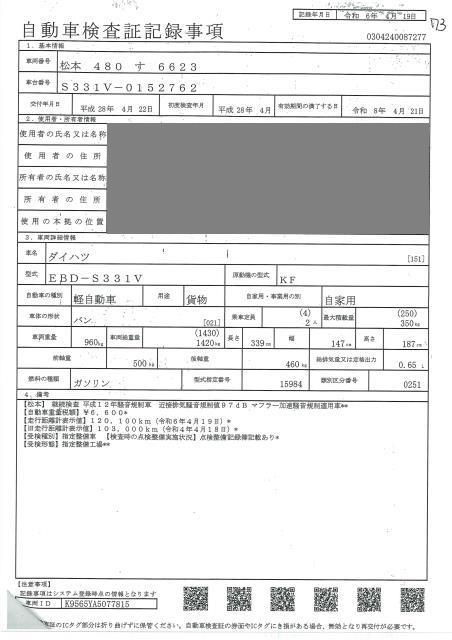 記録年月日 令和 6年 4月 19日
73
自動車検査証記録事項
0304240087277
1．基本情報
車両番号 松本 480 す 6623
車台番号 S331V-0152762
交付年月日 平成 28年 4月 22日 初度検査年月 平成 28年 4月 有効期間の満了する日 令和 8年 4月 21日
2．使用者・所有者情報
使用者の氏名又は名称
使用者の住所
所有者の氏名又は名称
所有者の住所
使用の本拠の位置
3．車両詳細情報
車名 ダイハツ [151]
型式 EBD-S331V 原動機の型式 KF
自動車の種別 軽自動車 用途 貨物 自家用・事業用の別 自家用
車体の形状 バン [021] 乗車定員 (4) 2人 最大積載量 (250) 350kg
車両重量 960kg 車両総重量 (1430) 1420kg 長さ 339cm 幅 147cm 高さ 187cm
前軸重 500kg 後軸重 460kg 総排気量又は定格出力 0.65 L
燃料の種類 ガソリン 型式指定番号 15984 類別区分番号 0251
4．備考
【松本】 継続検査 平成12年騒音規制車 近接排気騒音規制値97dB マフラー加速騒音規制適用車**
【自動車重量税額】 ¥6,600*
【走行距離計表示値】 120,100km（令和6年4月19日）*
【旧走行距離計表示値】 103,000km（令和4年4月18日）*
【受検種別】指定整備車 【検査時の点検整備実施状況】点検整備記録簿記載あり*
【受検形態】指定整備工場**
【注意事項】
記録事項はシステム登録時点の情報となります
車両ID K9565YA5077815
証のICタグ部分は折り曲げずに保管ください。自動車検査証の券面やICタグにき損がある場合、無効となり再交付が必要です。